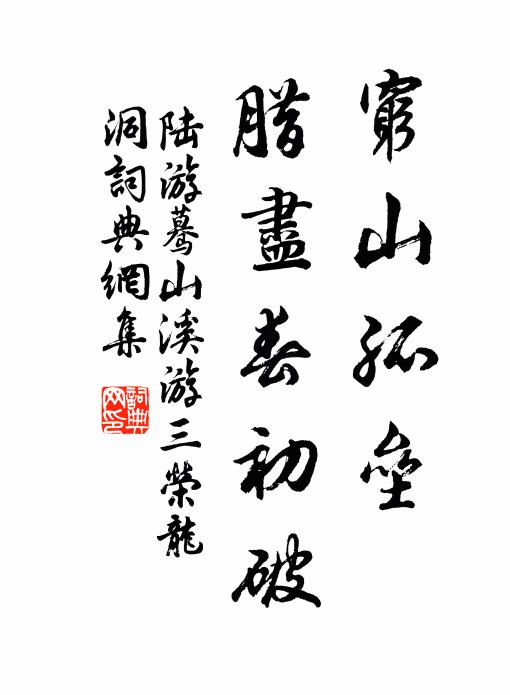 窮山孤壘
臘盡春初破
陸游驀山溪游三榮龍
洞詞典網集
詞典網印